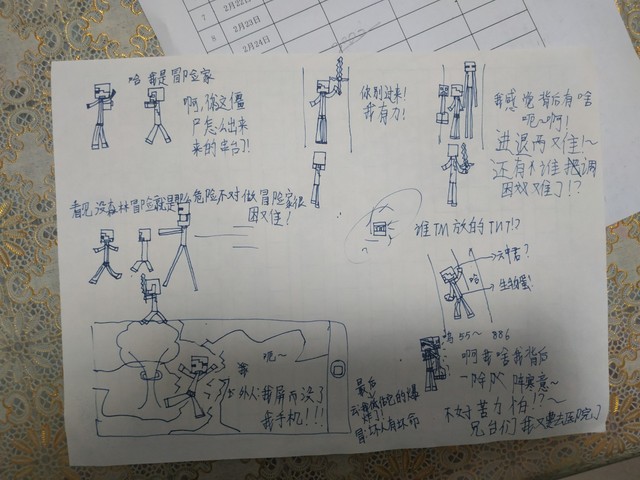 7 2月22日
8 2月23日
2月24日
哈 我是冒险家
啊,你这僵
尸怎么出来
来的串台了!
你别过来!
我有刀!
我感觉背后有啥
呢~啊!
进退两难!~
还有谁把调
困难了!?
看见没森林冒险就是那么危险不对做冒险家很
困难!
谁TM放的TNT!?
哈
生物蛋!
呜55~ 886
啊我啥我背后
一阵阵 阵寒意~
不好苦力怕!?~
兄台们我又要去医院了
呢~
外人:我屏不没了
我手机!!!
最后